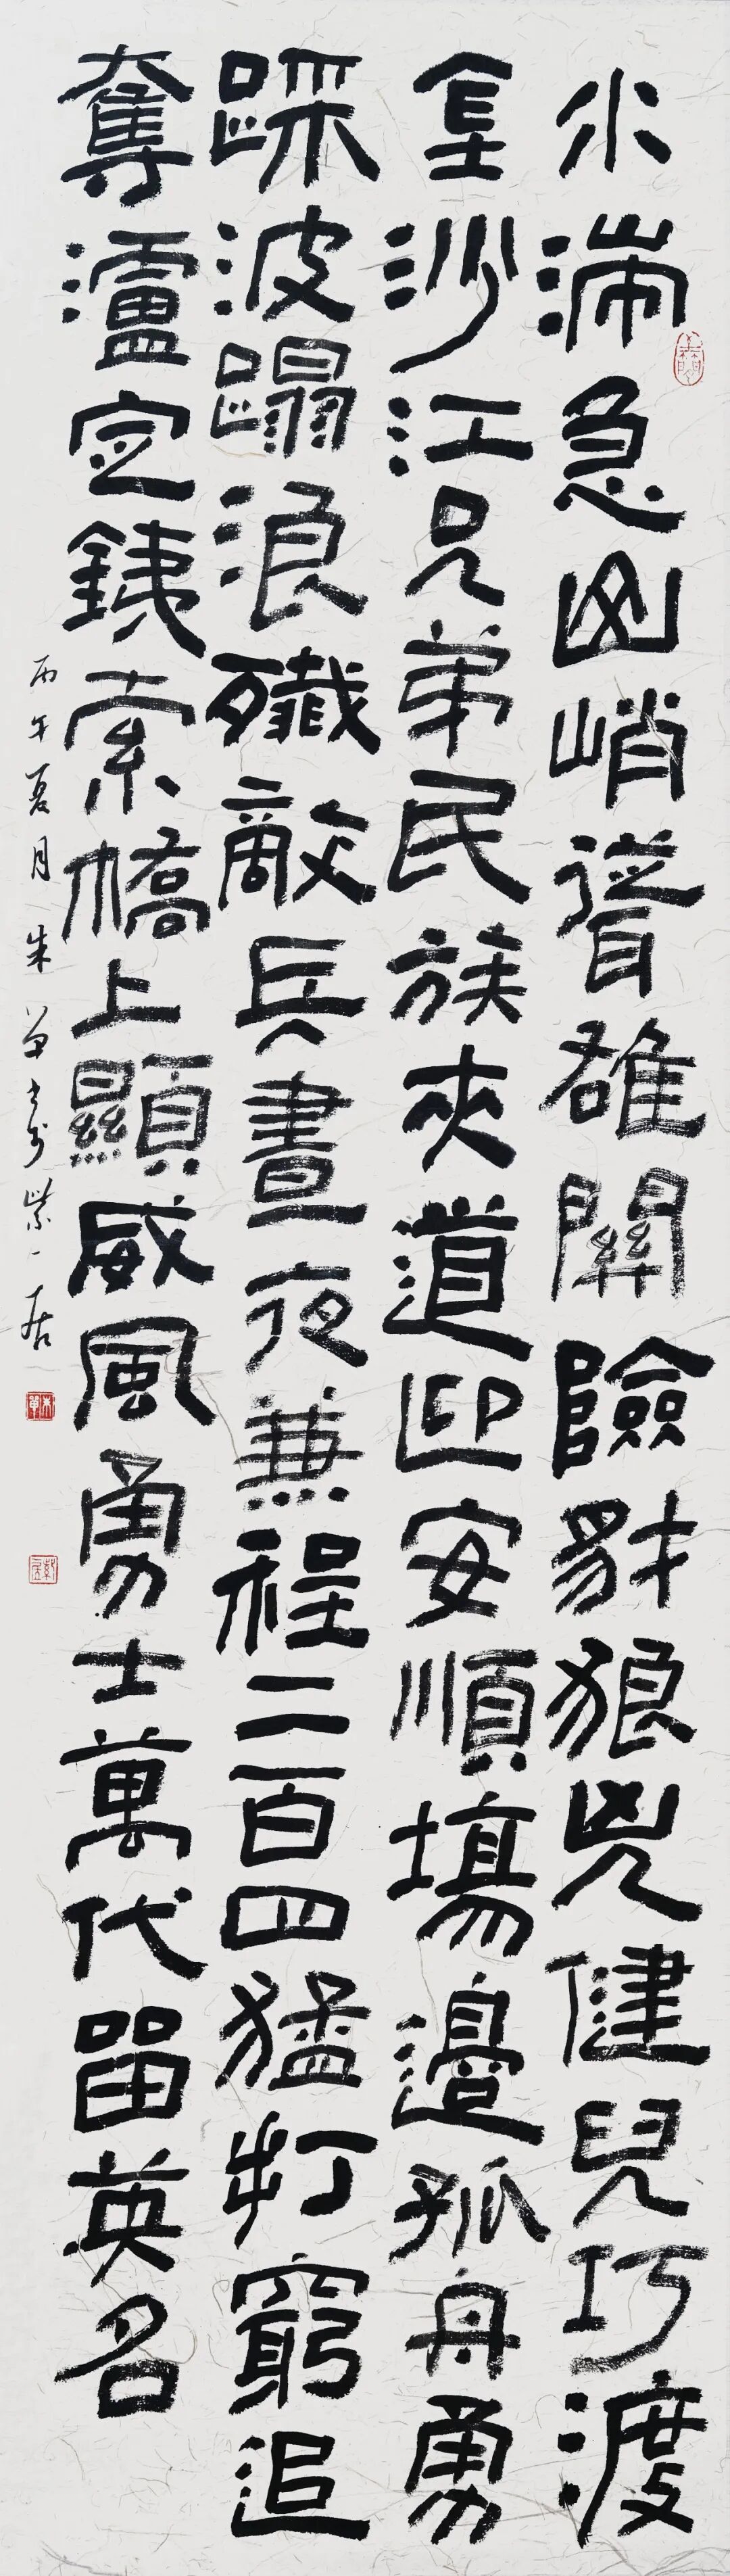 水湍急山峭聳雄關險豺狼兇健兒巧渡
金沙江兄弟民族夾道迎安順場邊孤舟勇
踩波蹋浪殲敵兵晝夜兼程二百四猛打窮追
奪瀘定銕索橋上顯威風勇士萬代畱英名
丙午夏月朱单书於紫一居